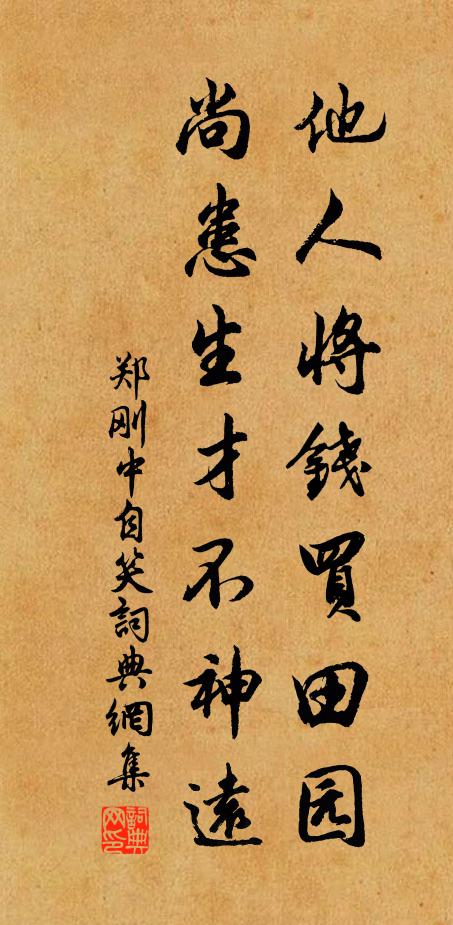 他人将錢買田园
尚患生才不神遠
郑刚中自笑詞典網集
詞典网印